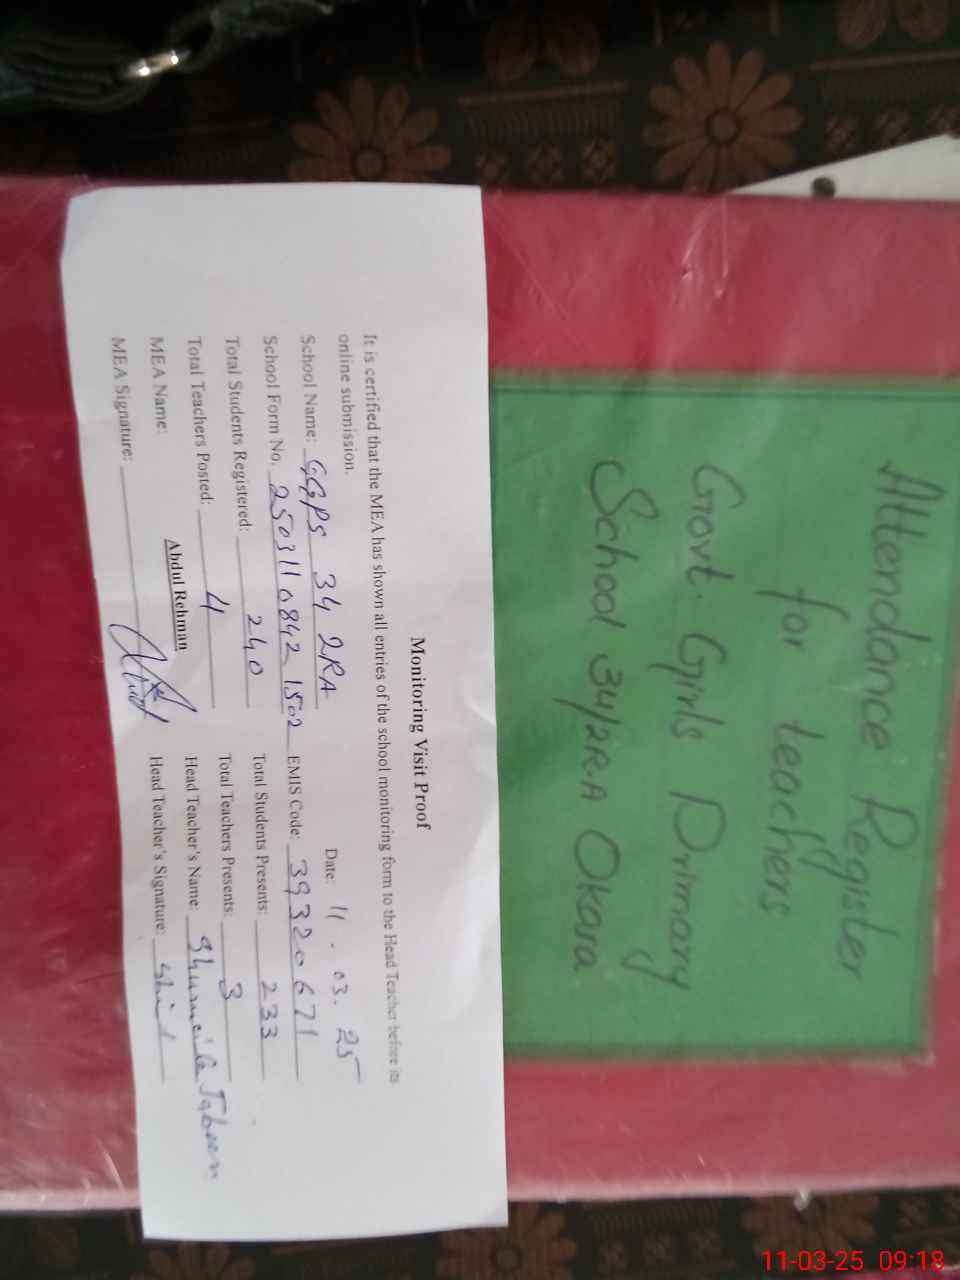 Attendance Register
for teachers
Govt. Girls Primary
School 34/2R.A Okara
Monitoring Visit Proof
It is certified that the MEA has shown all entries of the school monitoring form to the Head Teacher before its
online submission.
Date: 11.03.25
School Name: GGPS 34 2RA
School Form No. 250311 0842 1502 EMIS Code: 39320671
Total Students Registered: 240 Total Students Presents: 233
Total Teachers Posted: 4 Total Teachers Presents: 3
MEA Name: Abdul Rehman Head Teacher's Name: Jabeen
MEA Signature: Head Teacher's Signature:
11-03-25 09:18